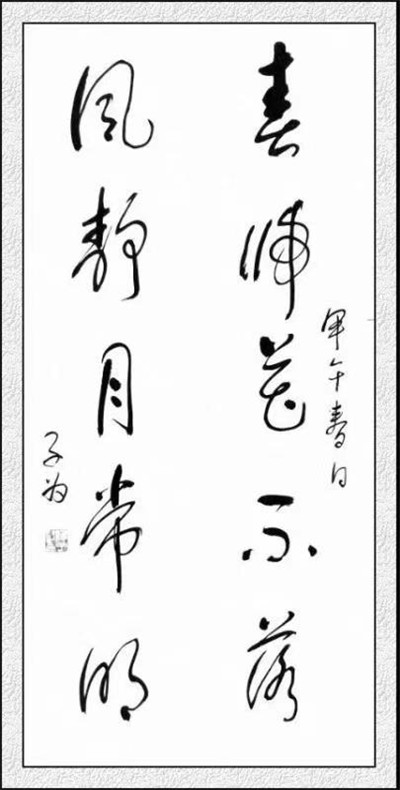 甲午春日
春归花不落
风静月常明
子为